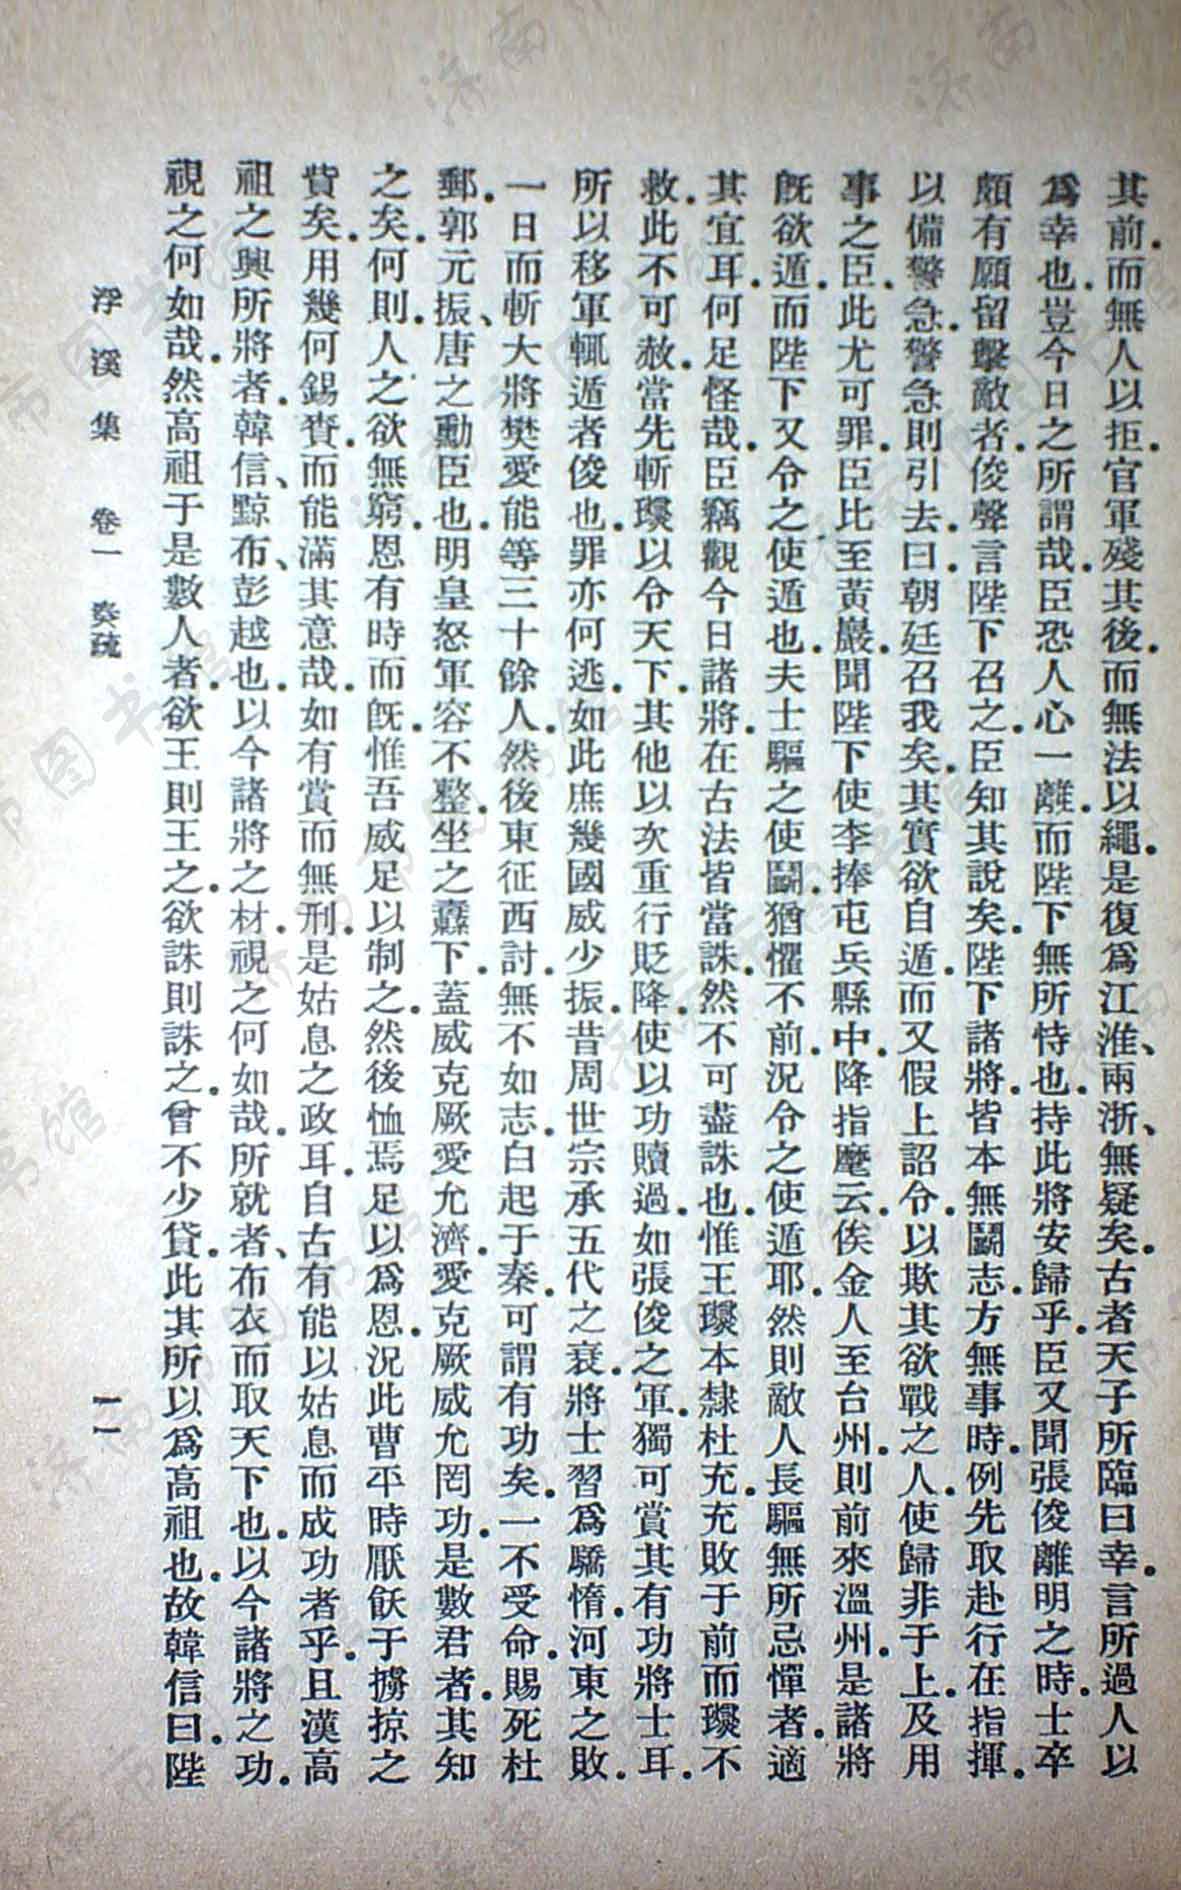 其前。而無人以拒。官軍殘其後。而無法以繩。是復爲江淮、兩浙、無疑矣。古者天子所臨曰幸。言所過人以
爲幸也。豈今日之所謂哉。臣恐人心一離。而陛下無所恃也。持此將安歸乎。臣又聞張俊離明之時。士卒
頗有願留擊敵者。俊聲言陛下召之。臣知其說矣。陛下諸將。皆本無鬬志。方無事時。例先取赴行在指揮。
以備警急。警急則引去。曰朝廷召我矣。其實欲自遁。而又假上詔令。以欺其欲戰之人。使歸非于上。及用
事之臣。此尤可罪。臣比至黃巖。聞陛下使李捧屯兵縣中。降指麾云。俟金人至台州。則前來溫州。是諸將
旣欲遁。而陛下又令之使遁也。夫士驅之使鬬。猶懼不前。況令之使遁耶。然則敵人長驅無所忌憚者。適
其宜耳。何足怪哉。臣竊觀今日諸將。在古法皆當誅。然不可盡誅也。惟王𤫉本隸杜充。充敗于前而𤫉不
救。此不可赦。當先斬𤫉以令天下。其他以次重行貶降。使以功贖過。如張俊之軍。獨可賞其有功將士耳。
所以移軍輒遁者俊也。罪亦何逃。如此庶幾國威少振。昔周世宗承五代之衰。將士習爲驕惰。河東之敗。
一日而斬大將樊愛能等三十餘人。然後東征西討。無不如志。白起于秦。可謂有功矣。一不受命。賜死杜
郵。郭元振、唐之勳臣也。明皇怒軍容不整。坐之纛下。蓋威克厥愛允濟。愛克厥威允罔功。是數君者。其知
之矣。何則。人之欲無窮。恩有時而旣。惟吾威足以制之。然後恤焉足以爲恩。況此曹平時厭飫于擄掠之
貲矣。用幾何錫賚。而能滿其意哉。如有賞而無刑。是姑息之政耳。自古有能以姑息而成功者乎。且漢高
祖之興所將者。韓信、黥布、彭越也。以今諸將之材。視之何如哉。所就者、布衣而取天下也。以今諸將之功。
視之何如哉。然高祖于是數人者。欲王則王之。欲誅則誅之。曾不少貸。此其所以爲高祖也。故韓信曰。陛
浮溪集 卷一 奏疏 一一